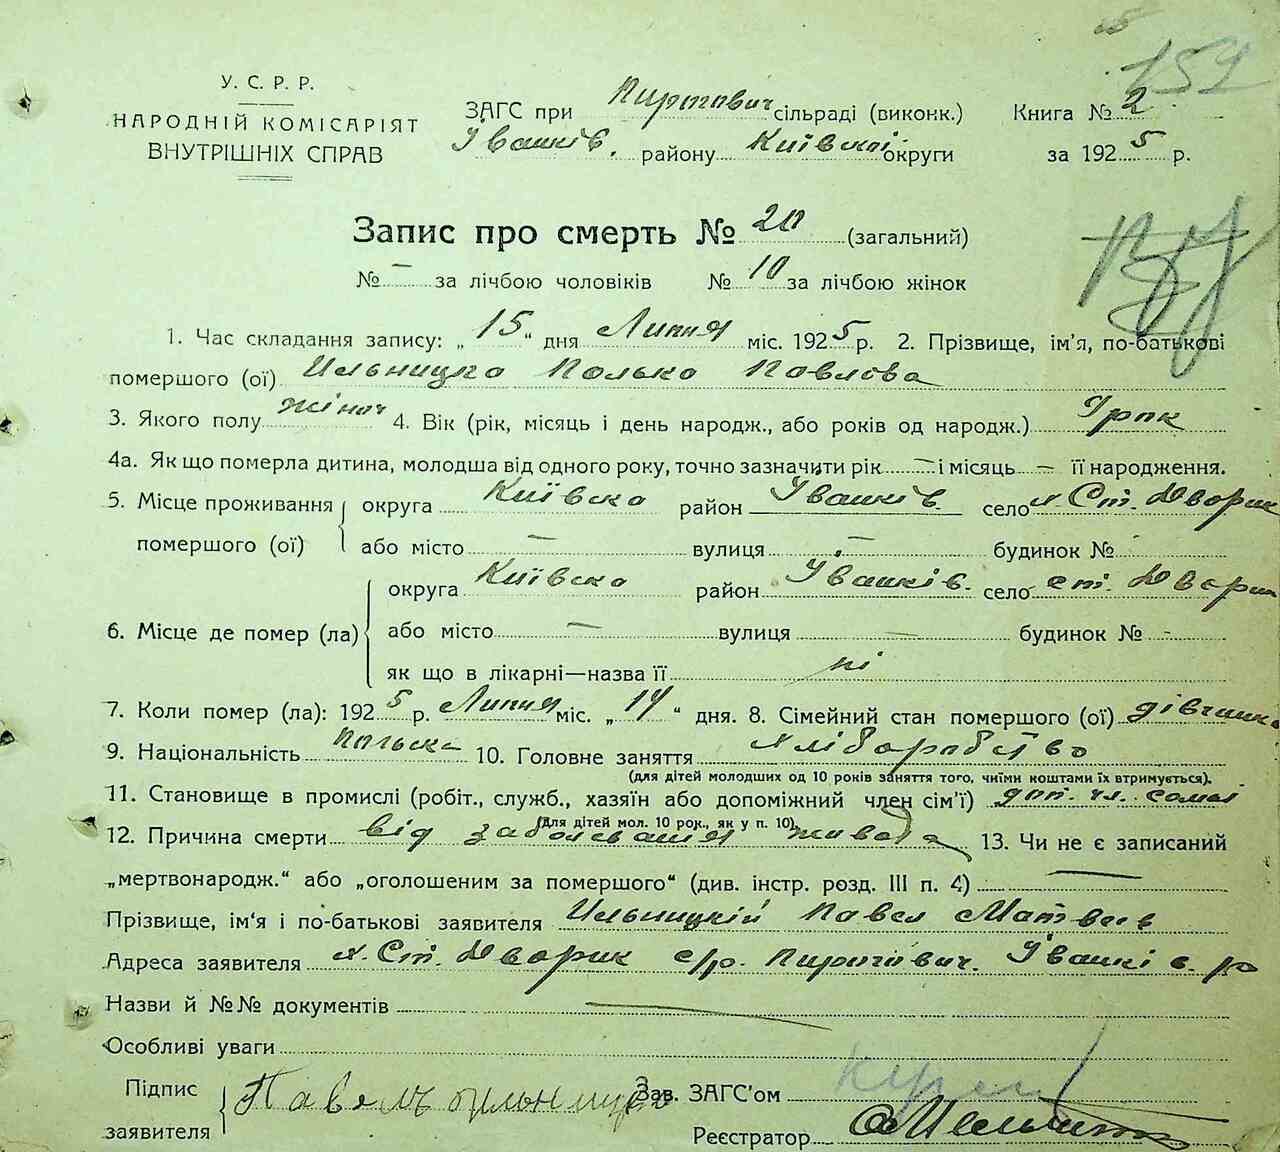 159
У. С. Р. Р.
НАРОДНІЙ КОМІСАРІЯТ
ВНУТРІШНІХ СПРАВ
ЗАГС при Пиртович сільраді (виконк.)
Івашків. району Київської округи
Книга № 2
за 1925 р.
Запис про смерть № 20 (загальний)
№ – за лічбою чоловіків № 10 за лічбою жінок
1. Час складання запису: „ 15 “ дня Липня міс. 1925 р. 2. Прізвище, ім'я, по-батькові
помершого (ої) Ильницка Полька Павлова
3. Якого полу жіноч 4. Вік (рік, місяць і день народж., або років од народж.)
4а. Як що померла дитина, молодша від одного року, точно зазначити рік – і місяць – її народження.
5. Місце проживання помершого (ої) округа Київска район Івашків. село х. Ст. Дворик
або місто – вулиця – будинок №
6. Місце де помер (ла) округа Київска район Івашків. село ст. Дворик
або місто – вулиця – будинок № -
як що в лікарні—назва її ні
7. Коли помер (ла): 1925 р. Липня міс. „ 14 “ дня. 8. Сімейний стан помершого (ої) дівчинка
9. Національність Польска 10. Головне заняття хліборобство
(для дітей молодших од 10 років заняття того, чиїми коштами їх втримується).
11. Становище в промислі (робіт., служб., хазяїн або допоміжний член сім'ї) доп. чл. сем'ї
(Для дітей мол. 10 рок., як у п. 10)
12. Причина смерти від заболевания живода 13. Чи не є записаний
„мертвонародж.“ або „оголошеним за помершого“ (див. інстр. розд. III п. 4) —
Прізвище, ім'я і по-батькові заявителя Ильницкій Павел Матвеев
Адреса заявителя х. Ст. Дворик с/р. Пиртович. Івашків. р
Назви й №№ документів —
Особливі уваги
Підпис заявителя Павелъ Ильницкий
Зав. ЗАГС'ом
Реєстратор